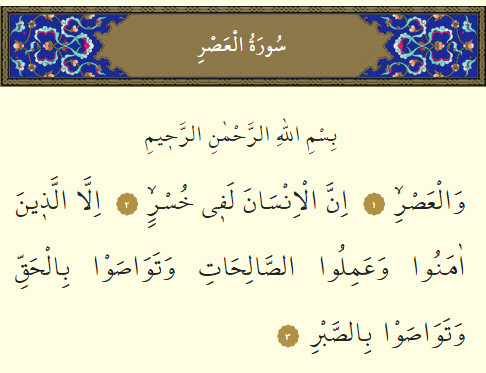 سُورَةُ الْعَصْرِ
بِسْمِ اللهِ الرَّحْمٰنِ الرَّح۪يمِ
وَالْعَصْرِۙ ١ اِنَّ الْاِنْسَانَ لَف۪ي خُسْرٍۙ ٢ اِلَّا الَّذ۪ينَ
اٰمَنُوا وَعَمِلُوا الصَّالِحَاتِ وَتَوَاصَوْا بِالْحَقِّ
وَتَوَاصَوْا بِالصَّبْرِ ٣